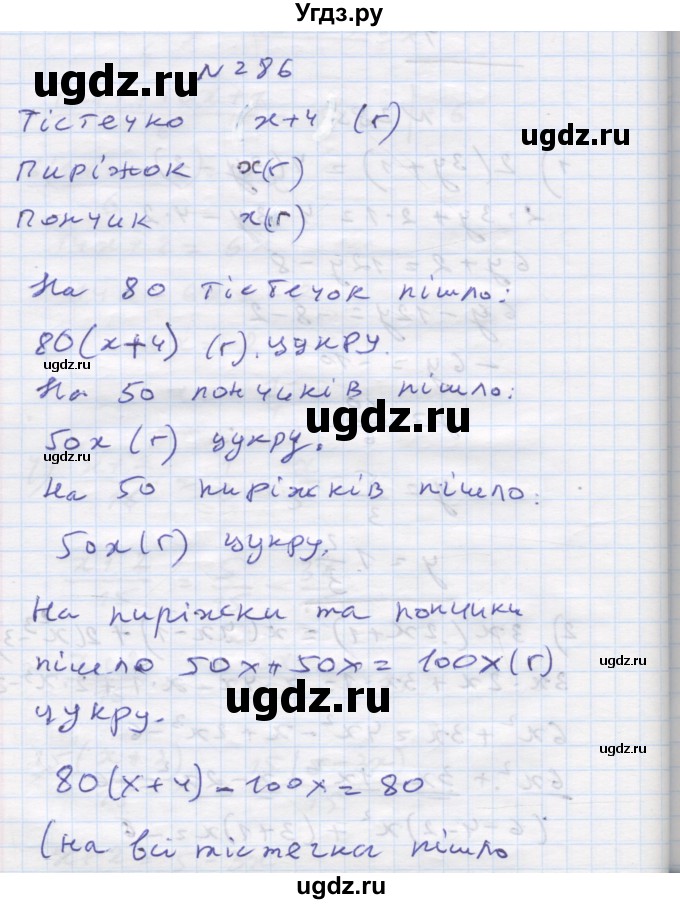 Угдз.ру
N 286
ugdz.ru
Тістечко x+4 (г)
ugdz.ru
Пиріжок x(г)
Пончик x(г)
На 80 тістечок пішло:
80(x+4) (г). цукру.
ugdz.ru
На 50 пончиків пішло:
ugdz.ru
50x (г) цукру.
ugdz.ru
На 50 пиріжків пішло:
50x(г) цукру.
На пиріжки та пончики
пішло 50x+50x = 100x(г)
ugdz.ru
ugdz.ru
цукру.
ugdz.ru
80(x+4) - 100x = 80
(на всі тістечка пішло
ugdz.ru